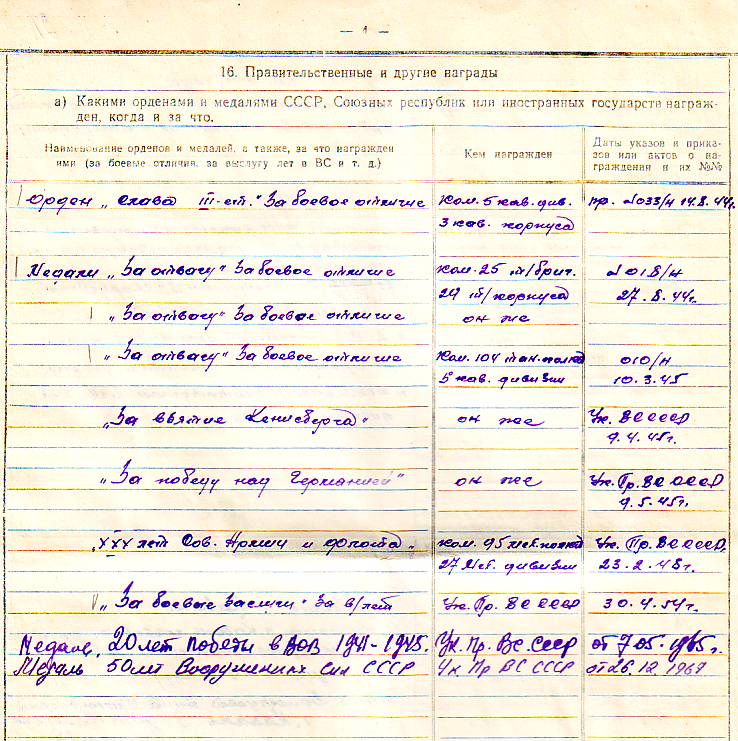 — 4 —
16. Правительственные и другие награды
а) Какими орденами и медалями СССР, Союзных республик или иностранных государств награж-
ден, когда и за что.
Наименование орденов и медалей, а также, за что награжден
ими (за боевые отличия, за выслугу лет в ВС и т. д.)
Кем награжден
Даты указов и прика-
зов или актов о на-
граждении и их №№
Орден „Слава III-ст.“ За боевое отличие
Ком. 5 кав. див.
3 кав. корпуса
пр. №033/н 14.8.44г.
Медали „За отвагу“ За боевое отличие
Ком. 25 т/бриг.
29 т/корпуса
№018/н
27.8.44г.
„За отвагу“ За боевое отличие
он же
„За отвагу“ За боевое отличие
Ком. 104 тан. полка
5 кав. дивизии
010/н
10.3.45
„За взятие Кенисберга“
он же
Ук. ВС СССР
9.4.45г.
„За победу над Германией“
он же
Ук. Пр. ВС СССР
9.5.45г.
„ХХХ лет Сов. Армии и флота“
Ком. 95 мех. полка
27 мех. дивизии
Ук. Пр. ВС СССР.
23.2.48г.
„За боевые заслуги“ За в/лет
Ук. Пр. ВС СССР
30.4.54г.
Медаль, 20 лет победы в ВОВ 1941-1945.
Ук. Пр. ВС. СССР
от 7.05.1965г.
Медаль 50 лет Вооруженных Сил СССР
Ук Пр ВС СССР
от 26.12.1967